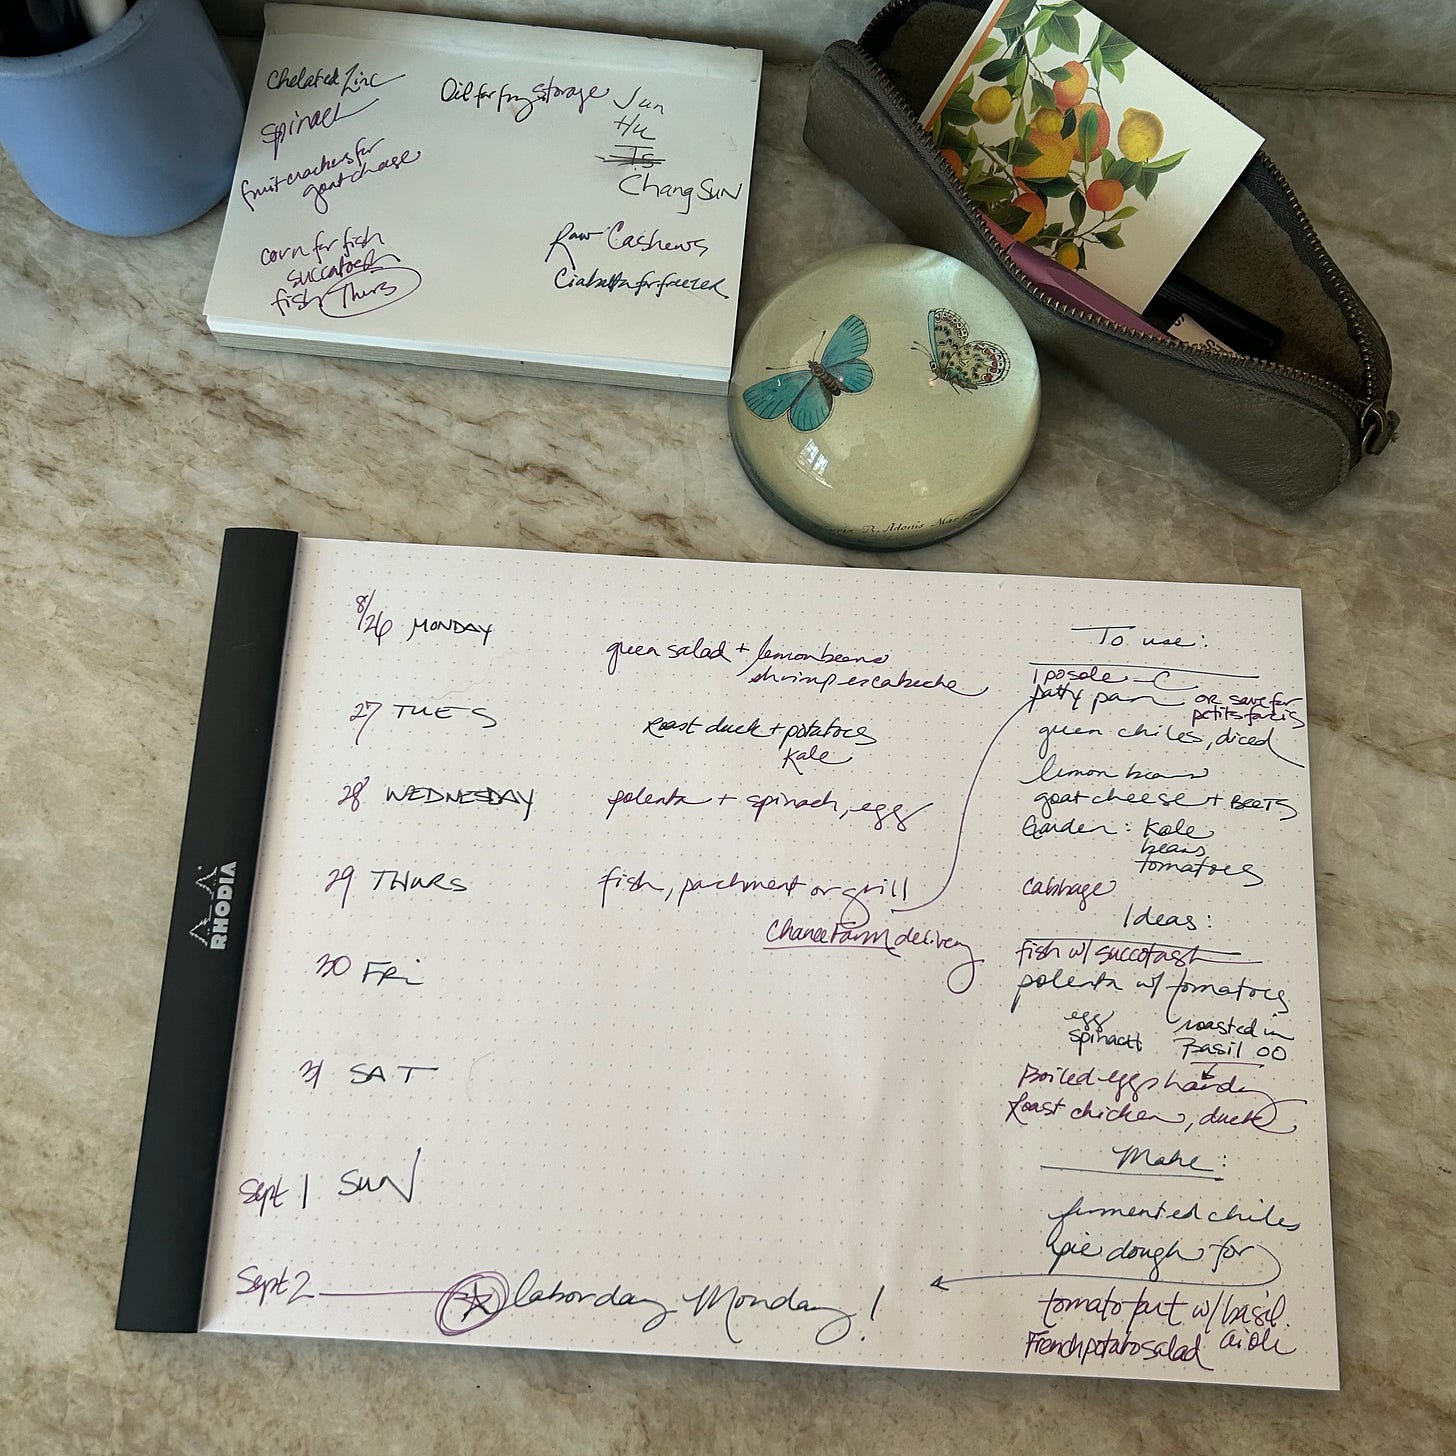 Chelated Zinc
spinach
fruit crackers for
goat cheese
corn for fish
succotash
fish Thurs
Oil for frog storage
Jun
Hu
Is
Chang SUN
Raw Cashews
Ciabatta for freezer
R. Adonis
RHODIA
8/26 MONDAY
green salad + lemon beans
shrimp escabeche
27 TUES
roast duck + potatoes
Kale
28 WEDNESDAY
polenta + spinach, egg
29 THURS
fish, parchment or grill
Chance Farm delivery
30 FRI
31 SAT
Sept 1 SUN
Sept 2 labor day Monday!
To use:
1 posole - C
patty pan or save for
petits farcis
green chiles, diced
lemon beans
goat cheese + BEETS
Garden: Kale
beans
tomatoes
cabbage
Ideas:
fish w/ succotash
polenta w/ tomatoes
egg
spinach
roasted in
Basil OO
Boiled eggs hard
roast chicken, duck
Make:
fermented chiles
pie dough for
tomato tart w/ basil
aioli
French potato salad